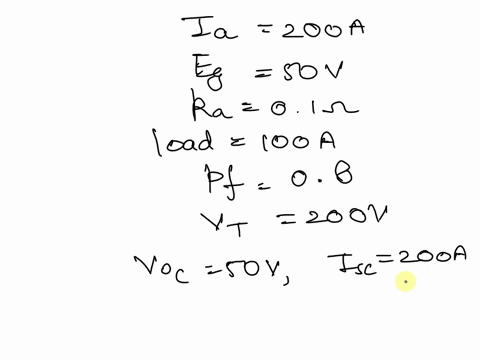 Ia = 200A
Eg = 50V
Ra = 0.1Ω
load = 100A
Pf = 0.8
VT = 200V
Voc = 50V, Isc = 200A